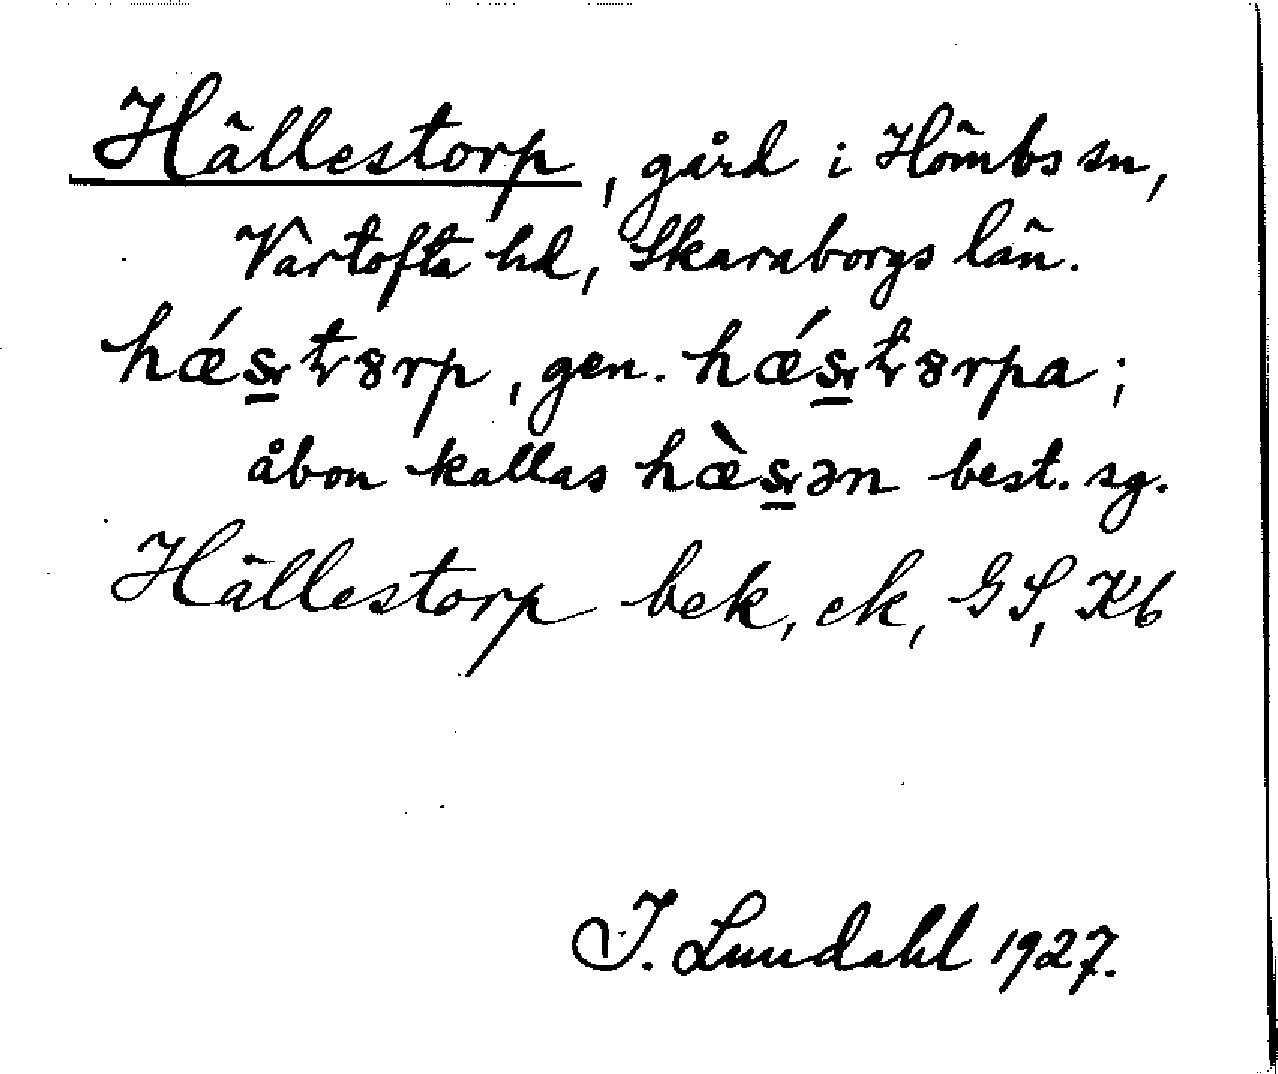 Hällestorp, gård i Hömbs sn,
Vartofta hd, Skaraborgs län.
hǽs̲tȣrp, gen. hǽs̲tȣrpa;
åbon kallas hæ̀s̲ən best. sg.
Hällestorp bek, ek, GS, Kb
I. Lundahl 1927.